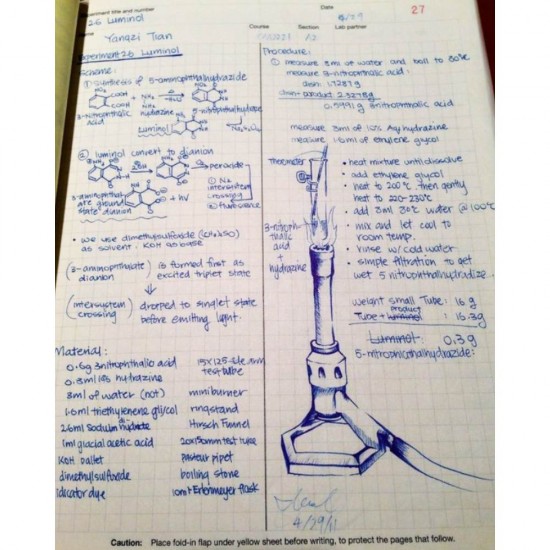 Experiment title and number
Date
27
26 Luminol
Course
Section
Lab partner
Name
Yangzi Tian
A2
Experiment 26 Luminol
Scheme:
① Synthesis of 5-aminophthalhydrazide
COOH
COOH
+ NH₂
NH₂
3-Nitrophthalic
Acid
hydrazine
5-nitrophthalhydraz
luminol
② luminol convert to dianion
peroxide
① N₂
intersystem
crossing
② fluorescence
+ hν
3-aminophthal
ate ground
state dianion
• we use dimethylsulfoxide
as solvent. KOH as base
(3-aminophthalate dianion) is formed first as
excited triplet state
(intersystem crossing) dropped to singlet state
before emitting light.
Material:
0.6g 3nitrophthalic acid
0.3ml 10% hydrazine
3ml of water (hot)
1.6ml triethylenene glycol
2.6ml Sodium
1ml glacial acetic acid
KOH pallet
dimethylsulfoxide
idicator dye
test tube
miniburner
ringstand
Hirsch Funnel
20x150mm test tube
pasteur pipet
boiling stone
10ml Erlenmeyer flask
Procedure:
① measure 3ml of water and boil to 80°C
measure 3-nitrophthalic acid:
dish: 1.7287g
dish + product 2.3278g
0.5991g 3nitrophthalic acid
measure .3ml of 10% Aq hydrazine
measure 1.6ml of ethylene glycol
Thermometer
3-nitroph-
thalic
acid
+
hydrazine
• heat mixture until dissolve
• add ethylene glycol
• heat to 200°C. then gently
heat to 220-230°C
• add 3ml 80°C water @ 100°C
• mix and let cool to
room temp.
• rinse w/ cold water
• simple filtration to get
wet 5 nitrophthalhydrazide..
weight small Tube: 16g
product
Tube + luminol : 16.3g
Luminol: 0.3g
5-nitrophthalhydrazide:
4/29/11
Caution: Place fold-in flap under yellow sheet before writing, to protect the pages that follow.